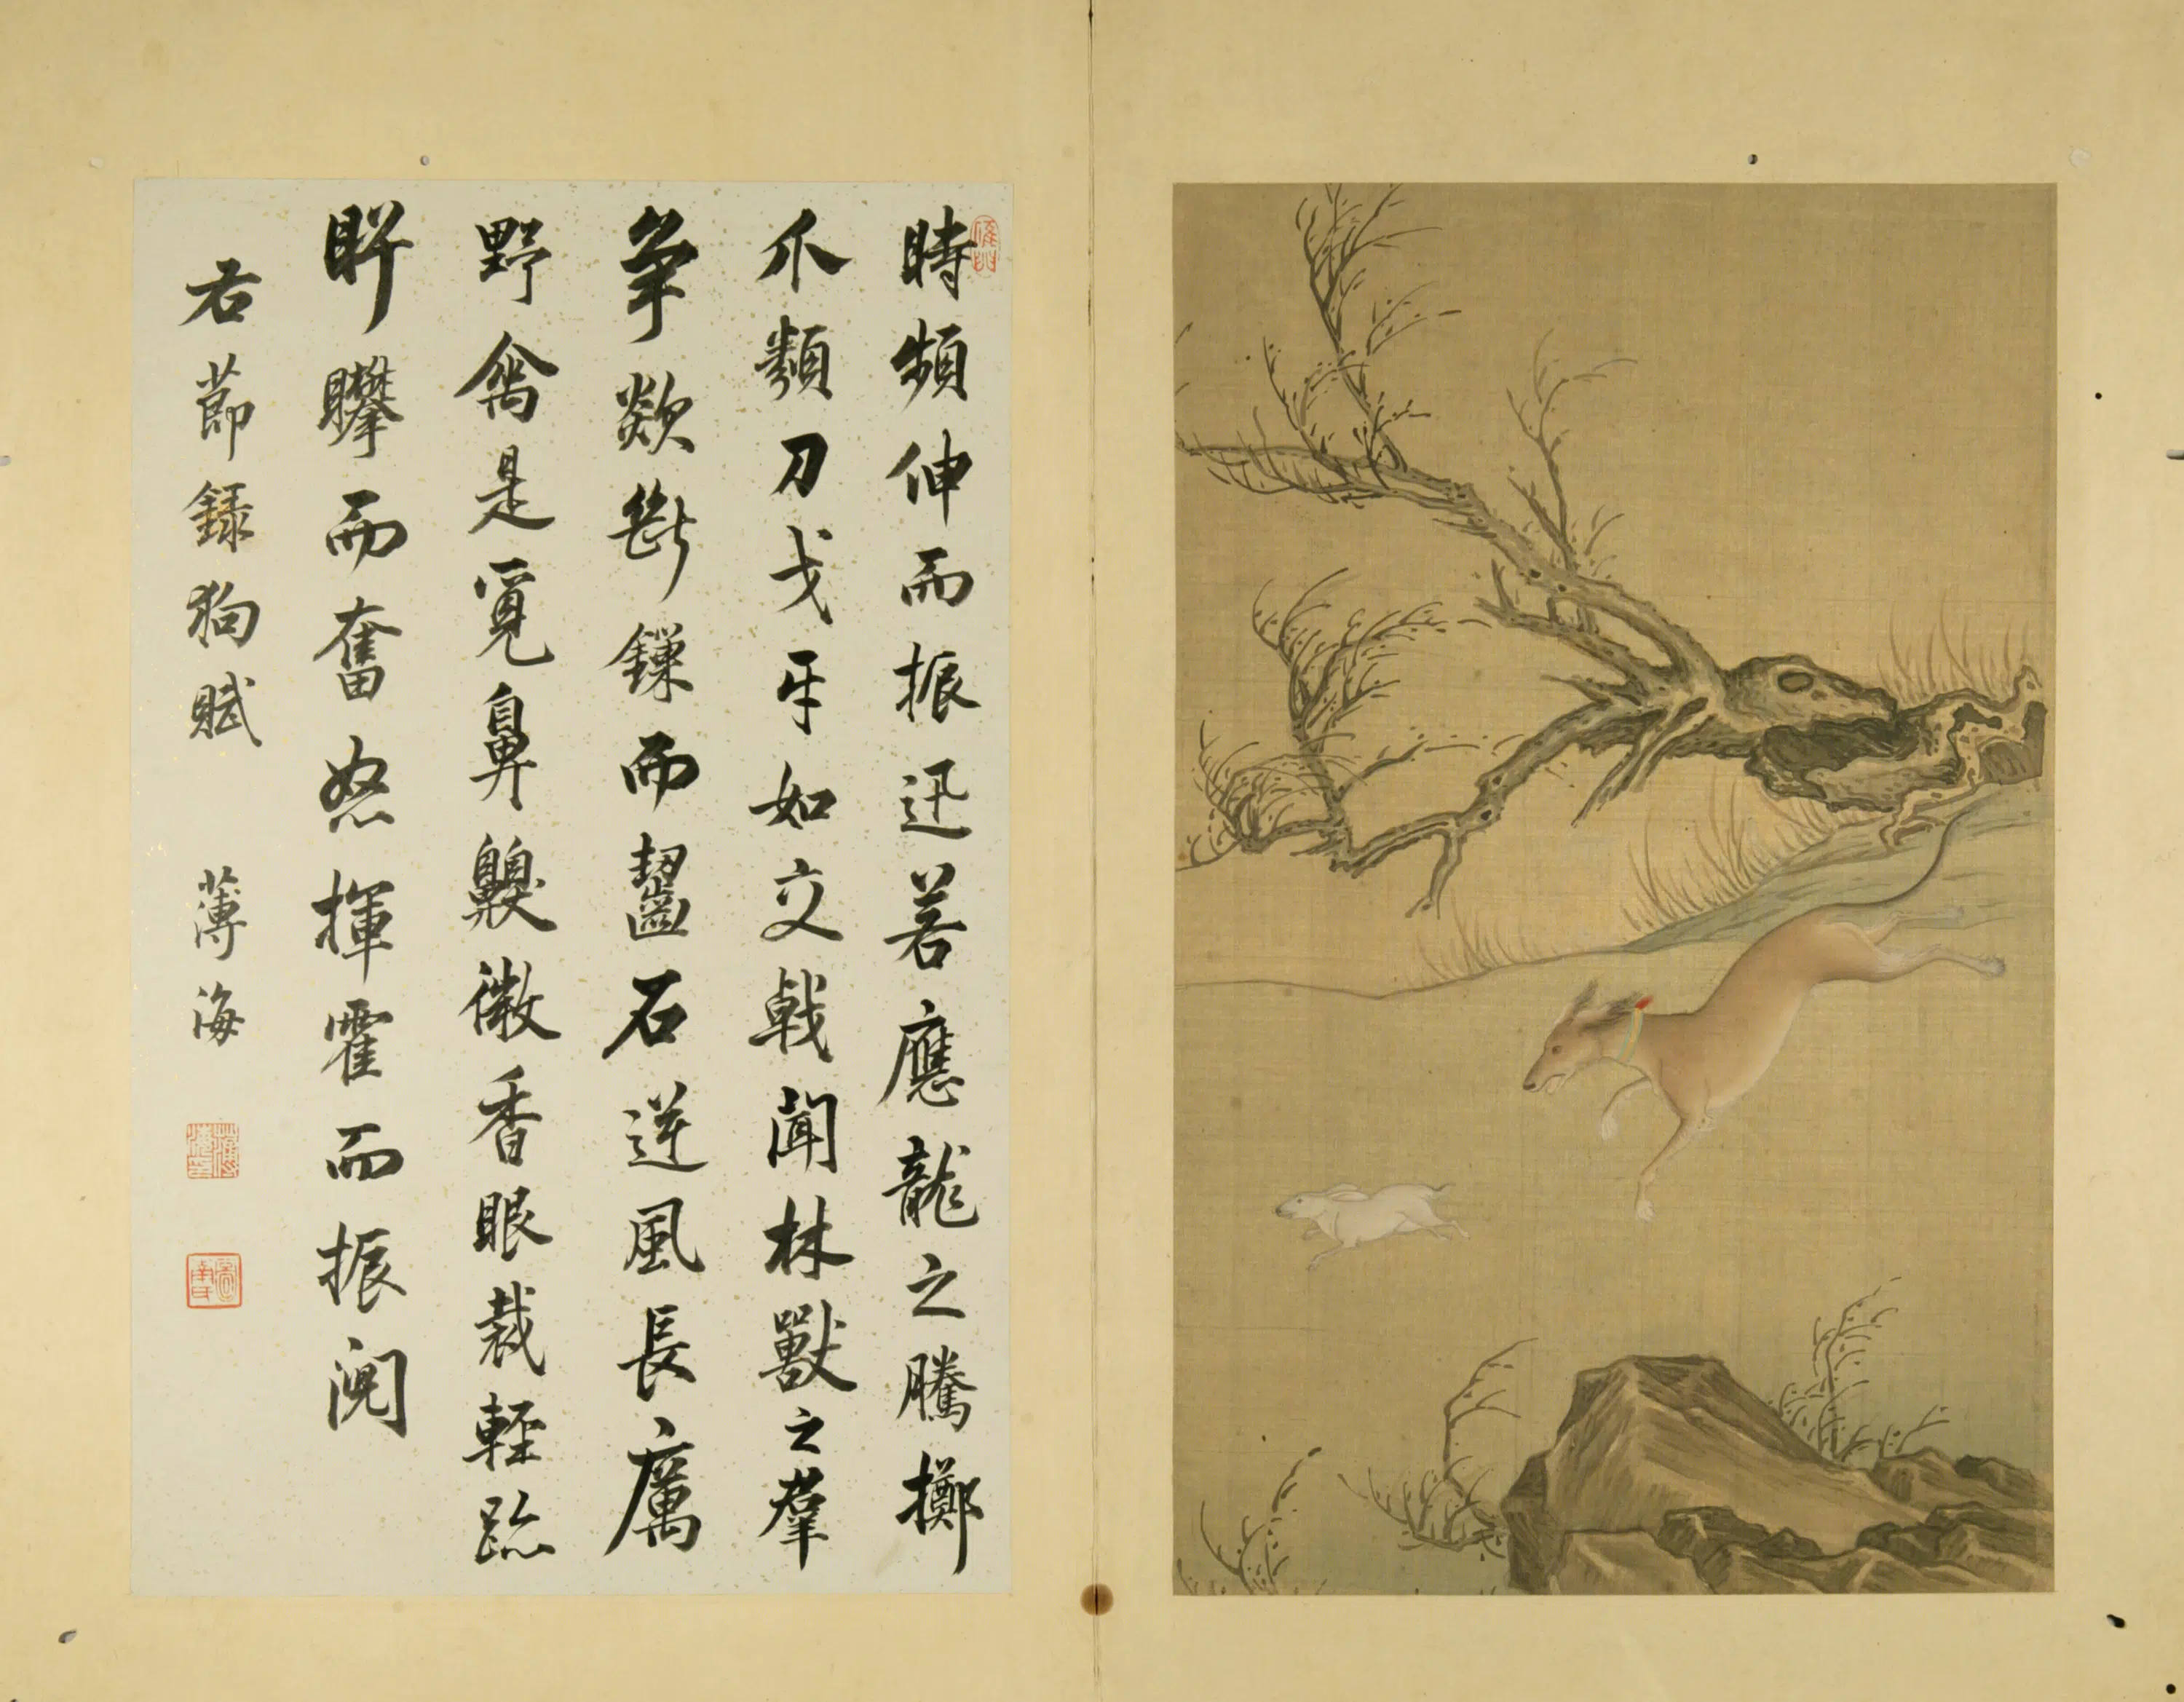 時頻伸而振迅若應龍之騰擲
爪類刀戈牙如交戟聞林獸之羣
爭欻斷鏁而齧石逆風長厲
野禽是覓鼻齅微香眼裁輕跡
而奮怒揮霍而振
右節錄狗賦 薄海